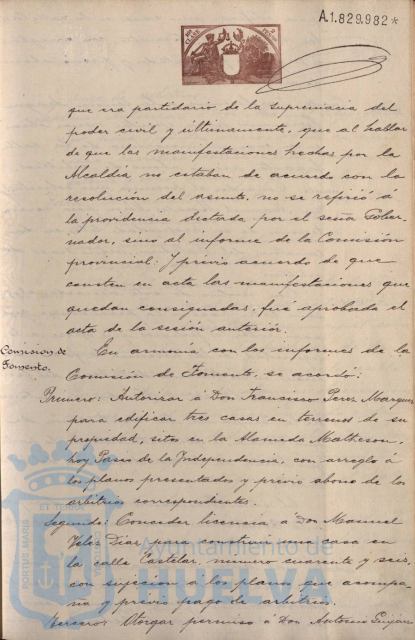 A.1.829.982*
que era partidario de la supremacia del
poder civil y últimamente, que al hablar
de que las manifestaciones hechas por la
Alcaldia no estaban de acuerdo con la
resolución del asunto, no se refirió á
la providencia dictada por el señor Gober-
nador, sino al informe de la Comisión
provincial. Y previo acuerdo de que
consten en acta las manifestaciones que
quedan consignadas, fué aprobada el
acta de la sesión anterior.
Comision de
Fomento.
En armonía con los informes de la
Comisión de Fomento, se acordó:
Primero: Autorizar á Don Francisco Perez Marquez
para edificar tres casas en terrenos de su
propiedad, sitos en la Alameda Matheson,
hoy Paseo de la Independencia, con arreglo á
los planos presentados y previo abono de los
arbitrios correspondientes.
Segundo: Conceder licencia á Don Manuel
Velez Diaz para construir una casa en
la calle Castelar, numero cuarenta y seis,
con sujeción á los planos que acompa-
ña y previo pago de arbitrios.
Tercero: Otorgar permiso á Don Antonio
PORTUS MARIS
ET TERRAE
Ayuntamiento de
HUELVA